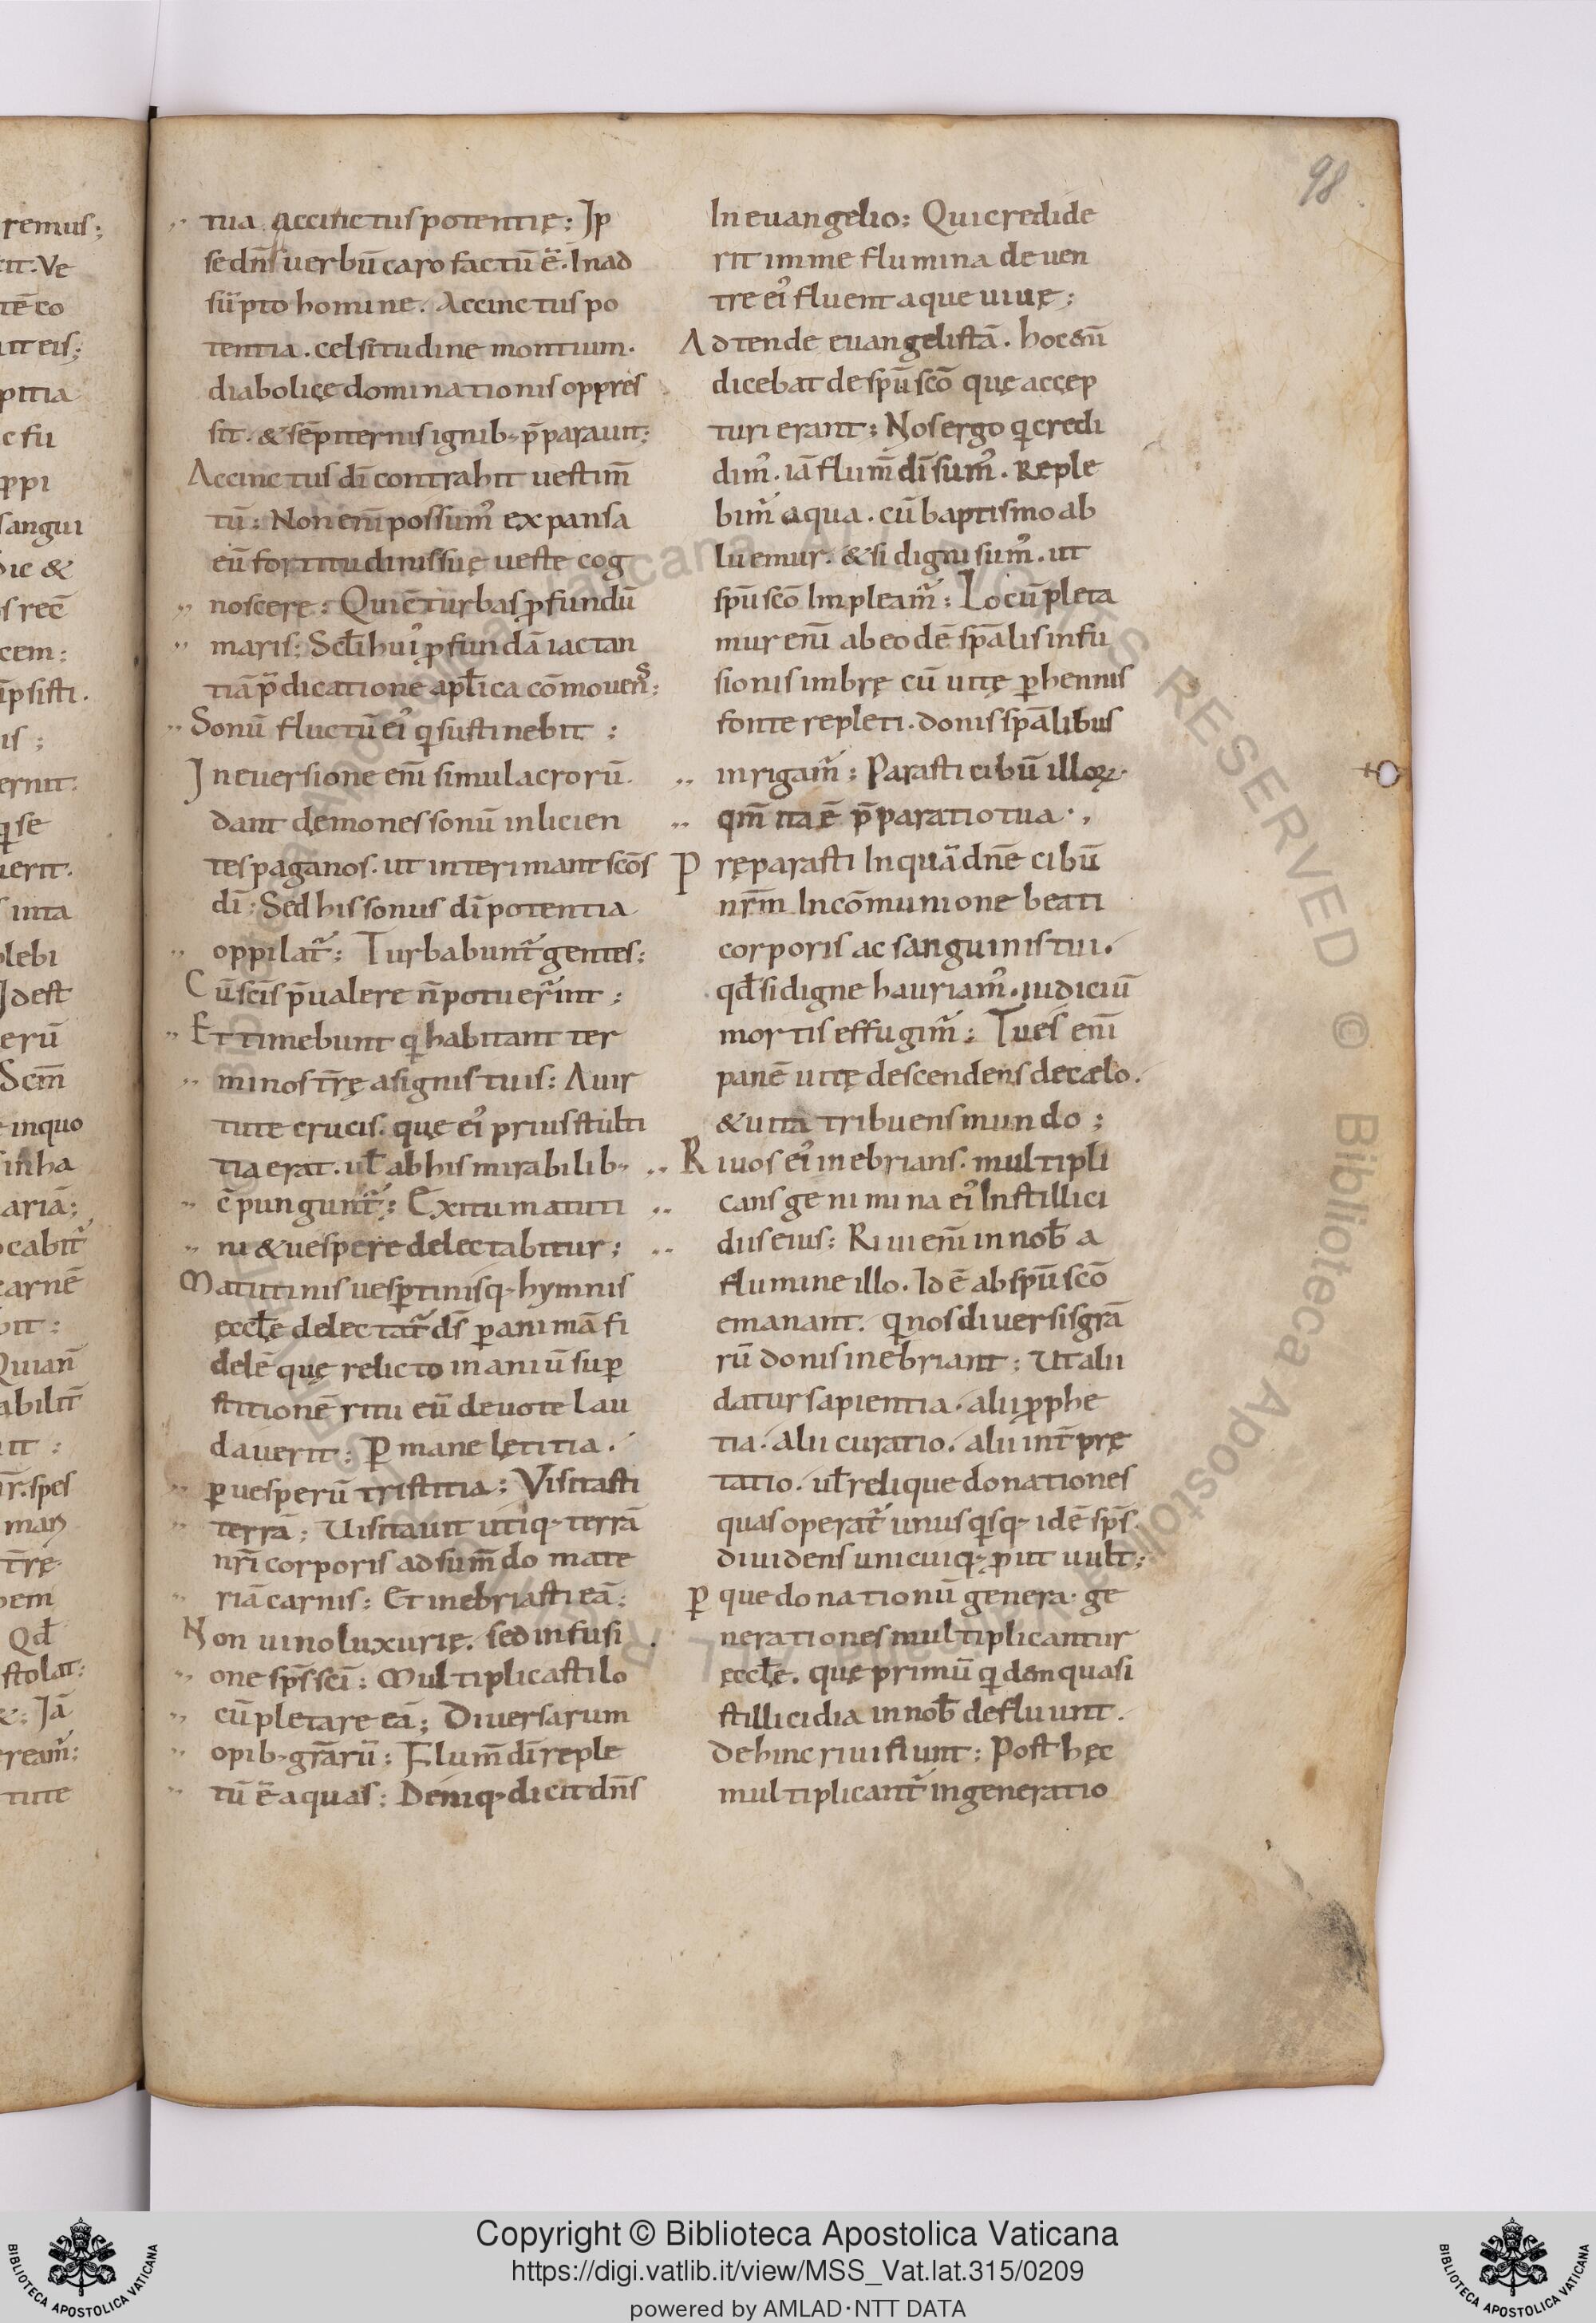 98
remus;
tit. Ve
tē co
it eis;
pitia
c fu
ppi
sangui
die &
s recē
cem:
ipsisti.
is;
ernit.
qͥ se
uerit.
s inita
plebi
Id est
erū
Scm̄
e inquo
sinha
ariā;
ocabit᷑
carnē
bit:
Quian̄
abilit̄
it:
r̄. spes
mar
t̄rę
bem
Qd̄
stolat:
&: Iā
ream᷑:
tute
tua accinctus potentię: Ip
se dn̄s uerbū caro factū ē. In ad
sūpto homine. Accinctus po
tentia. celsitudine montium.
diabolicę dominationis oppres
sit. & sēpiternis ignib; p̄parauit:
Accinctus dī contrahit uestim̄
tū: Non eni᷒ possum᷒ expansa
eū fortitudinis suę ueste cog
noscere: Qui c̄turbas ꝓfundū
maris: Scl̄i hui᷒ ꝓfundā iactan
tiā p̄dicatione apl̄ica cōmouens:
Sonū fluctū ei᷒ qͥ sustinebit:
In euersione eni᷒ simulacrorū.
dant dęmones sonū inlicien
tes paganos. ut interimant scōs
dī: Sed his sonus dī potentia
oppilat᷑: Turbabunt᷑ gentes:
Cū scīs p̄ualere n̄ potuerint;
Et timebunt qͥ habitant ter
minos t̄rę a signis tuis: A uir
tute crucis. quę ei᷒ prius stulti
tia erat. ul̄ ab his mirabilib;
c̄pungunt᷑: Exitu matuti
ni & uespere delectabitur;
Matutinis uesp̱tinisq; hymnis
ęccl̄ę delectat᷑ dī ꝑ animā fi
delē quę relicto inaniū suꝑ
stitionē ritu eū deuote lau
dauerit: Per mane lętitia.
ꝑ uesperū tristitia: Visitasti
terrā: Uisitauit utiq; terrā
nr̄i corporis adsum̄do mate
riā carnis: Et inebriasti eā:
Non uino luxurię. sed infusi
one sp̄s scī: Multiplicasti lo
cūpletare eā; Diuersarum
opib; gr̄arū: Flum̄ dī reple
tū ē aquas: Deniq; dicit dn̄s
In euangelio: Qui credide
rit in me flumina de uen
tre ei᷒ fluent aque uiuę;
Adtende euangelistā. hoc aut̄
dicebat de sp̄u scō quę accep
turi erant: Nos ergo qͥ credi
dim᷒. iā flum̄ dī sum᷒. Reple
bim᷑ aqua. cū baptismo ab
luemur. & si digni sum᷒. ut
sp̄u scō Impleam᷑: Locūpleta
mur eni᷒ ab eodē sp̄alis infu
sionis imbrę cū uitę perhennis
fonte repleti. donis sp̄alibus
inrigam᷑: Parasti cibū illoꝝ.
qm̄ ita ē p̄paratio tua.,
Pręparasti Inquā dn̄e cibū
nr̄m In cōmunione beati
corporis ac sanguinis tui.
qd̄ si digne hauriam᷒. iudiciū
mortis effugim᷑: Tu es eni᷒
panē uitę descendens de cælo.
& uitā tribuens mundo;
Riuos ei᷒ inebrians. multipli
cans genimina ei᷒ In stillici
diis eius: Riui eni᷒ in nob̄ a
flumine illo. Id ē ab sp̄u scō
emanant. qͥ nos diuersis gr̄a
rū donis inebriant: Ut alii
datur sapientia. alii ꝓphe
tia. alii curatio. alii int̄prę
tatio. ul̄ relique donationes
quas operat᷑ unus qͥsq; idē sp̄s.
diuidens unicuiq; ꝓut uult;
Per que donationū genera. ge
nerationes multiplicantur
ęccl̄ę. quę primū qͥdem quasi
stillicidia in nob̄ defluunt.
dehinc riui fiunt: Post hęc
multiplicant᷑ in generatio
© Biblioteca Apostolica Vaticana ALL RIGHTS RESERVED
Copyright © Biblioteca Apostolica Vaticana
https://digi.vatlib.it/view/MSS_Vat.lat.315/0209
powered by AMLAD·NTT DATA
BIBLIOTECA APOSTOLICA VATICANA
BIBLIOTECA APOSTOLICA VATICANA